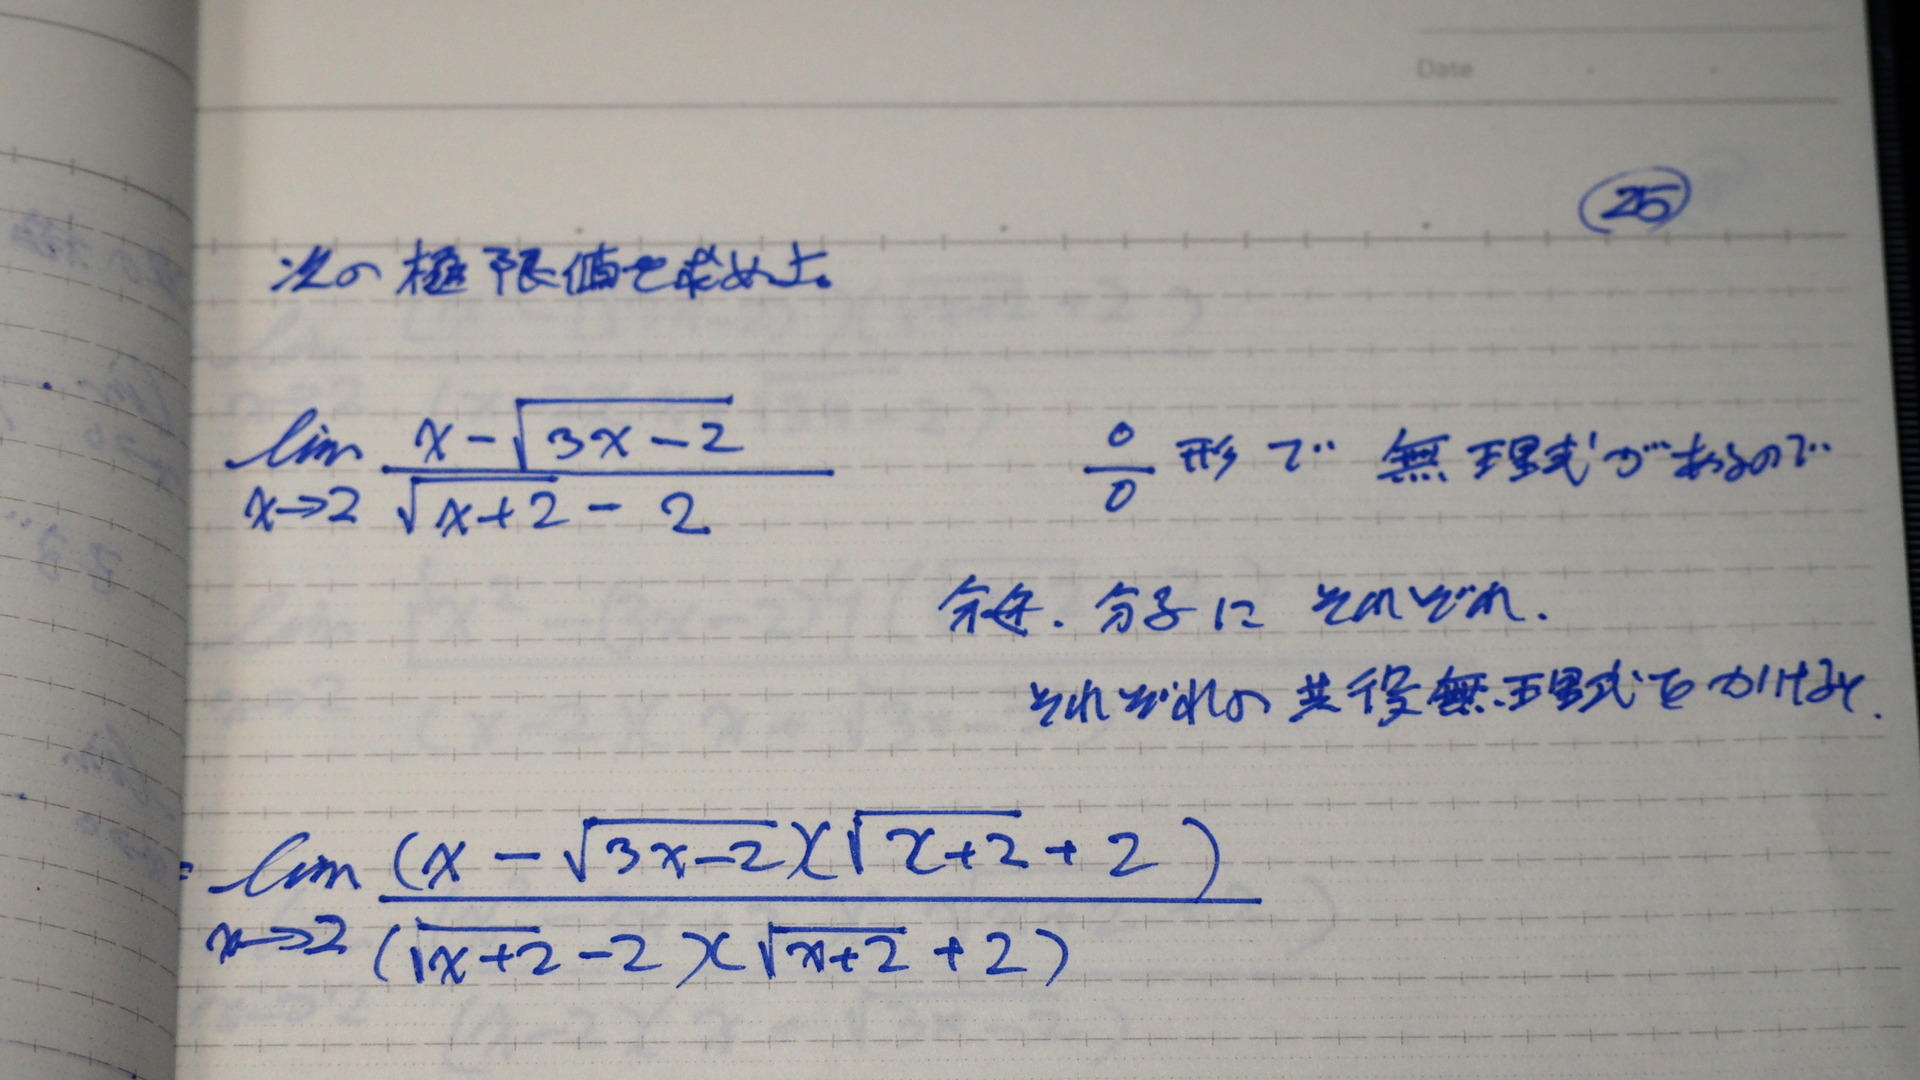 Date
25
次の極限値を求めよ。
lim x→2 (x-√(3x-2))/(√(x+2)-2)
0/0 形で 無理式があるので
分母.分子に それぞれ.
それぞれの共役無理式をかける.
= lim x→2 ((x-√(3x-2))(√(x+2)+2))/((√(x+2)-2)(√(x+2)+2))